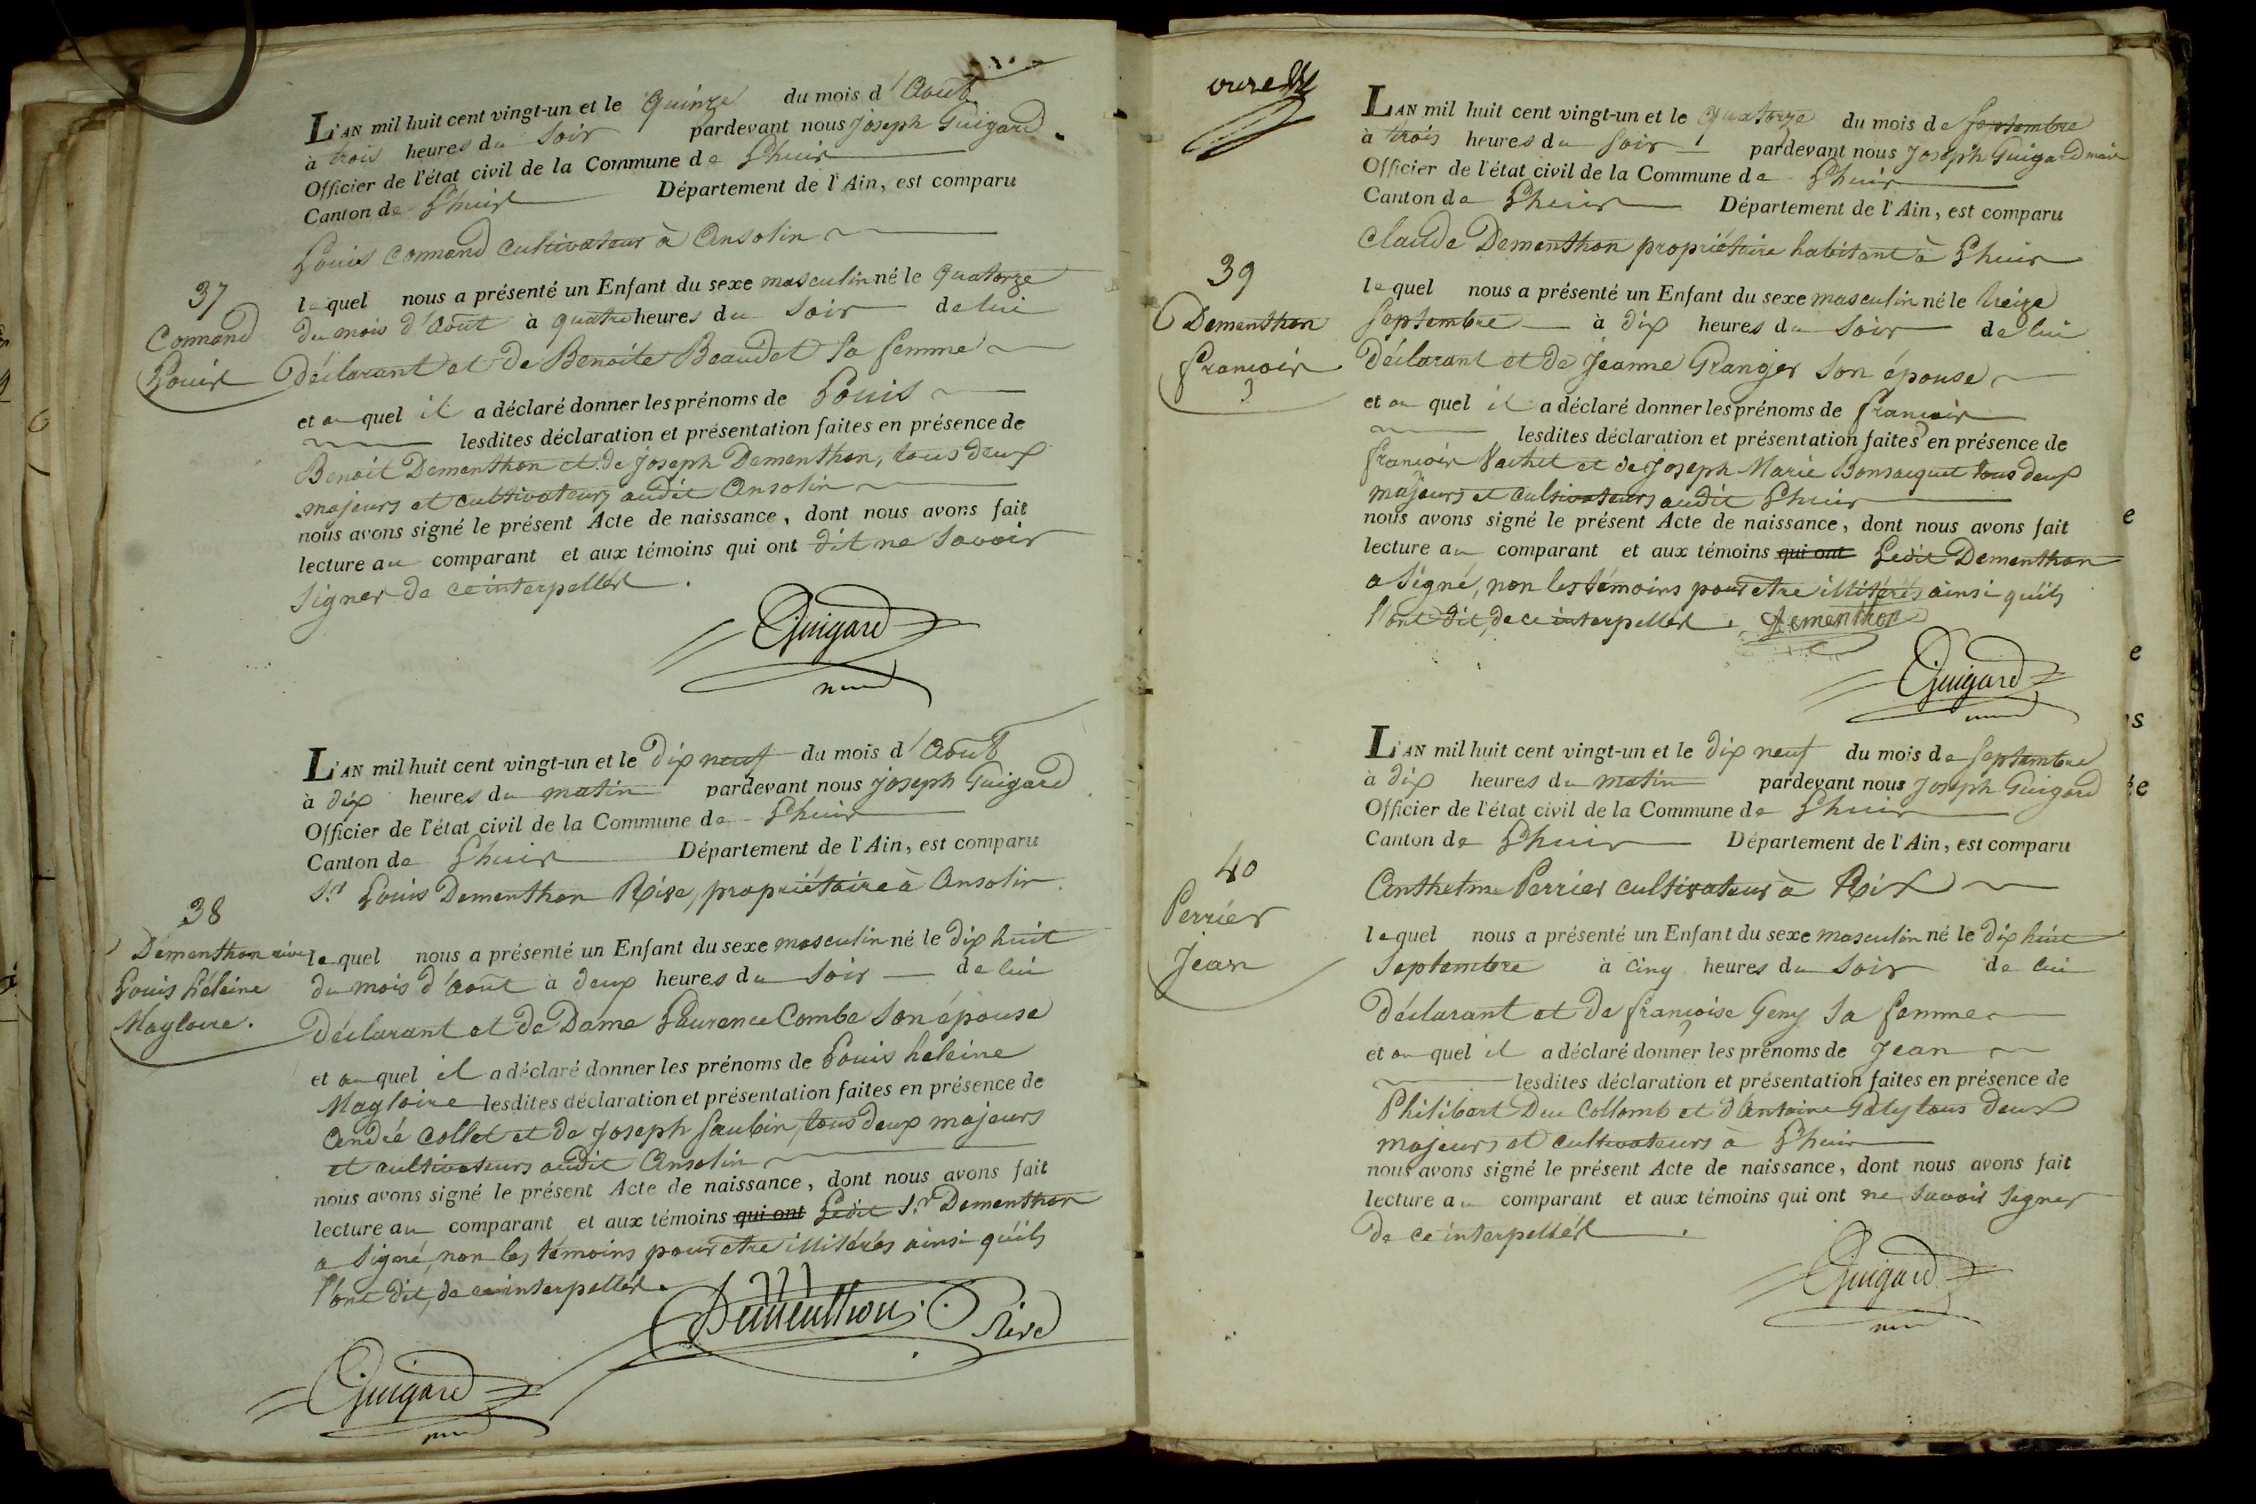 L'AN mil huit cent vingt-un et le Quinze du mois d'Août
à trois heures du Soir pardevant nous Joseph Guigard
Officier de l'état civil de la Commune de Lhuis
Canton de Lhuis Département de l'Ain, est comparu
Louis Connand cultivateur à Ansolin
37
Connand
Louis
lequel nous a présenté un Enfant du sexe masculin né le quatorze
du mois d'Août à quatre heures du Soir de lui
déclarant et de Benoite Beaudet sa femme
et auquel il a déclaré donner les prénoms de Louis
lesdites déclaration et présentation faites en présence de
Benoit Dementhon et de Joseph Dementhon, tous deux
majeurs et cultivateurs audit Ansolin
nous avons signé le présent Acte de naissance, dont nous avons fait
lecture au comparant et aux témoins qui ont dit ne Savoir
Signer de ce interpellés.
Guigard
L'AN mil huit cent vingt-un et le Dix neuf du mois d'Août
à dix heures du matin pardevant nous Joseph Guigard
Officier de l'état civil de la Commune de Lhuis
Canton de Lhuis Département de l'Ain, est comparu
Sr Louis Dementhon Rive, propriétaire à Ansolin
38
Dementhon rive
Louis héleine
Magloire.
lequel nous a présenté un Enfant du sexe masculin né le dix huit
du mois d'août à deux heures du Soir de lui
déclarant et de Dame Laurence Combe son épouse
et auquel il a déclaré donner les prénoms de Louis héleine
Magloire lesdites déclaration et présentation faites en présence de
André Collet et de Joseph Saubin, tous deux majeurs
et cultivateurs audit Ansolin
nous avons signé le présent Acte de naissance, dont nous avons fait
lecture au comparant et aux témoins qui ont Ledit Sr Dementhon
a Signé, non les témoins pour etre illitérés ainsi qu'ils
l'ont dit, de ce interpellés.
Dementhon Rive
Guigard
L'AN mil huit cent vingt-un et le quatorze du mois de Septembre
à trois heures du Soir pardevant nous Joseph Guigard maire
Officier de l'état civil de la Commune de Lhuis
Canton de Lhuis Département de l'Ain, est comparu
Claude Dementhon propriétaire habitant à Lhuis
39
Dementhon
françois
lequel nous a présenté un Enfant du sexe masculin né le treize
Septembre à dix heures du Soir de lui
déclarant et de Jeanne Granger son épouse
et au quel il a déclaré donner les prénoms de françois
lesdites déclaration et présentation faites en présence de
françois Vachet et de Joseph Marie Bonsacquet tous deux
majeurs et cultivateurs audit Lhuis
nous avons signé le présent Acte de naissance, dont nous avons fait
lecture au comparant et aux témoins qui ont Ledit Dementhon
a Signé, non les témoins pour etre illitérés ainsi qu'ils
l'ont dit, de ce interpellés. Dementhon
Guigard
L'AN mil huit cent vingt-un et le dix neuf du mois de Septembre
à dix heures du matin pardevant nous Joseph Guigard
Officier de l'état civil de la Commune de Lhuis
Canton de Lhuis Département de l'Ain, est comparu
Anthelme Perrier cultivateur à Rix
40
Perrier
Jean
lequel nous a présenté un Enfant du sexe masculin né le dix huit
Septembre à cinq heures du Soir de lui
déclarant et de françoise Geny sa femme
et au quel il a déclaré donner les prénoms de Jean
lesdites déclaration et présentation faites en présence de
Philibert Du Collomb et d'Antoine tous deux
majeurs et cultivateurs à Lhuis
nous avons signé le présent Acte de naissance, dont nous avons fait
lecture au comparant et aux témoins qui ont ne Savoir Signer
de ce interpellés.
Guigard